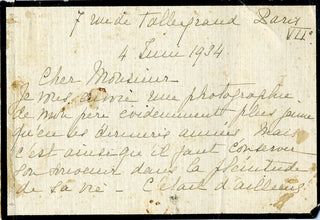 7 rue de Talleyrand Paris
VIIe
4 Juin 1934
Cher Monsieur
Je une photographie
de mon père évidemment plus jeune
qu'en ces dernières années Mais
c'est ainsi qu'il faut conserver
son souvenir dans la plénitude
de sa vie – C'était d'ailleurs